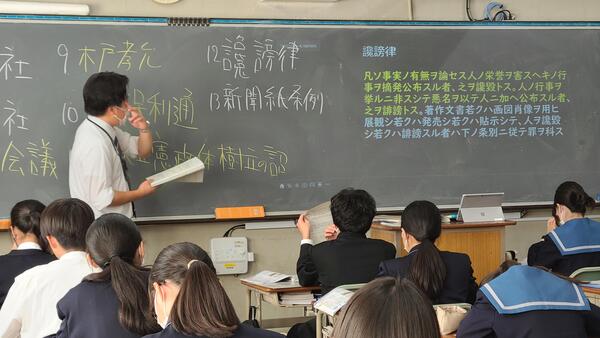 社
社
会議
9 木戸孝允
10
利通
立憲政体樹立の詔
12 讒謗律
13 新聞紙条例
讒謗律
凡ソ事実ノ有無ヲ論セス人ノ栄誉ヲ害スヘキノ行
事ヲ摘発公布スル者、之ヲ讒毀トス。人ノ行事ヲ
挙ルニ非スシテ悪名ヲ以テ人ニ加ヘ公布スル者、
之ヲ誹謗トス。著作文書若クハ画図肖像ヲ用ヒ
展観シ若クハ発売シ若クハ貼示シテ、人ヲ讒毀
シ若クハ誹謗スル者ハ下ノ条別ニ従テ罪ヲ科ス